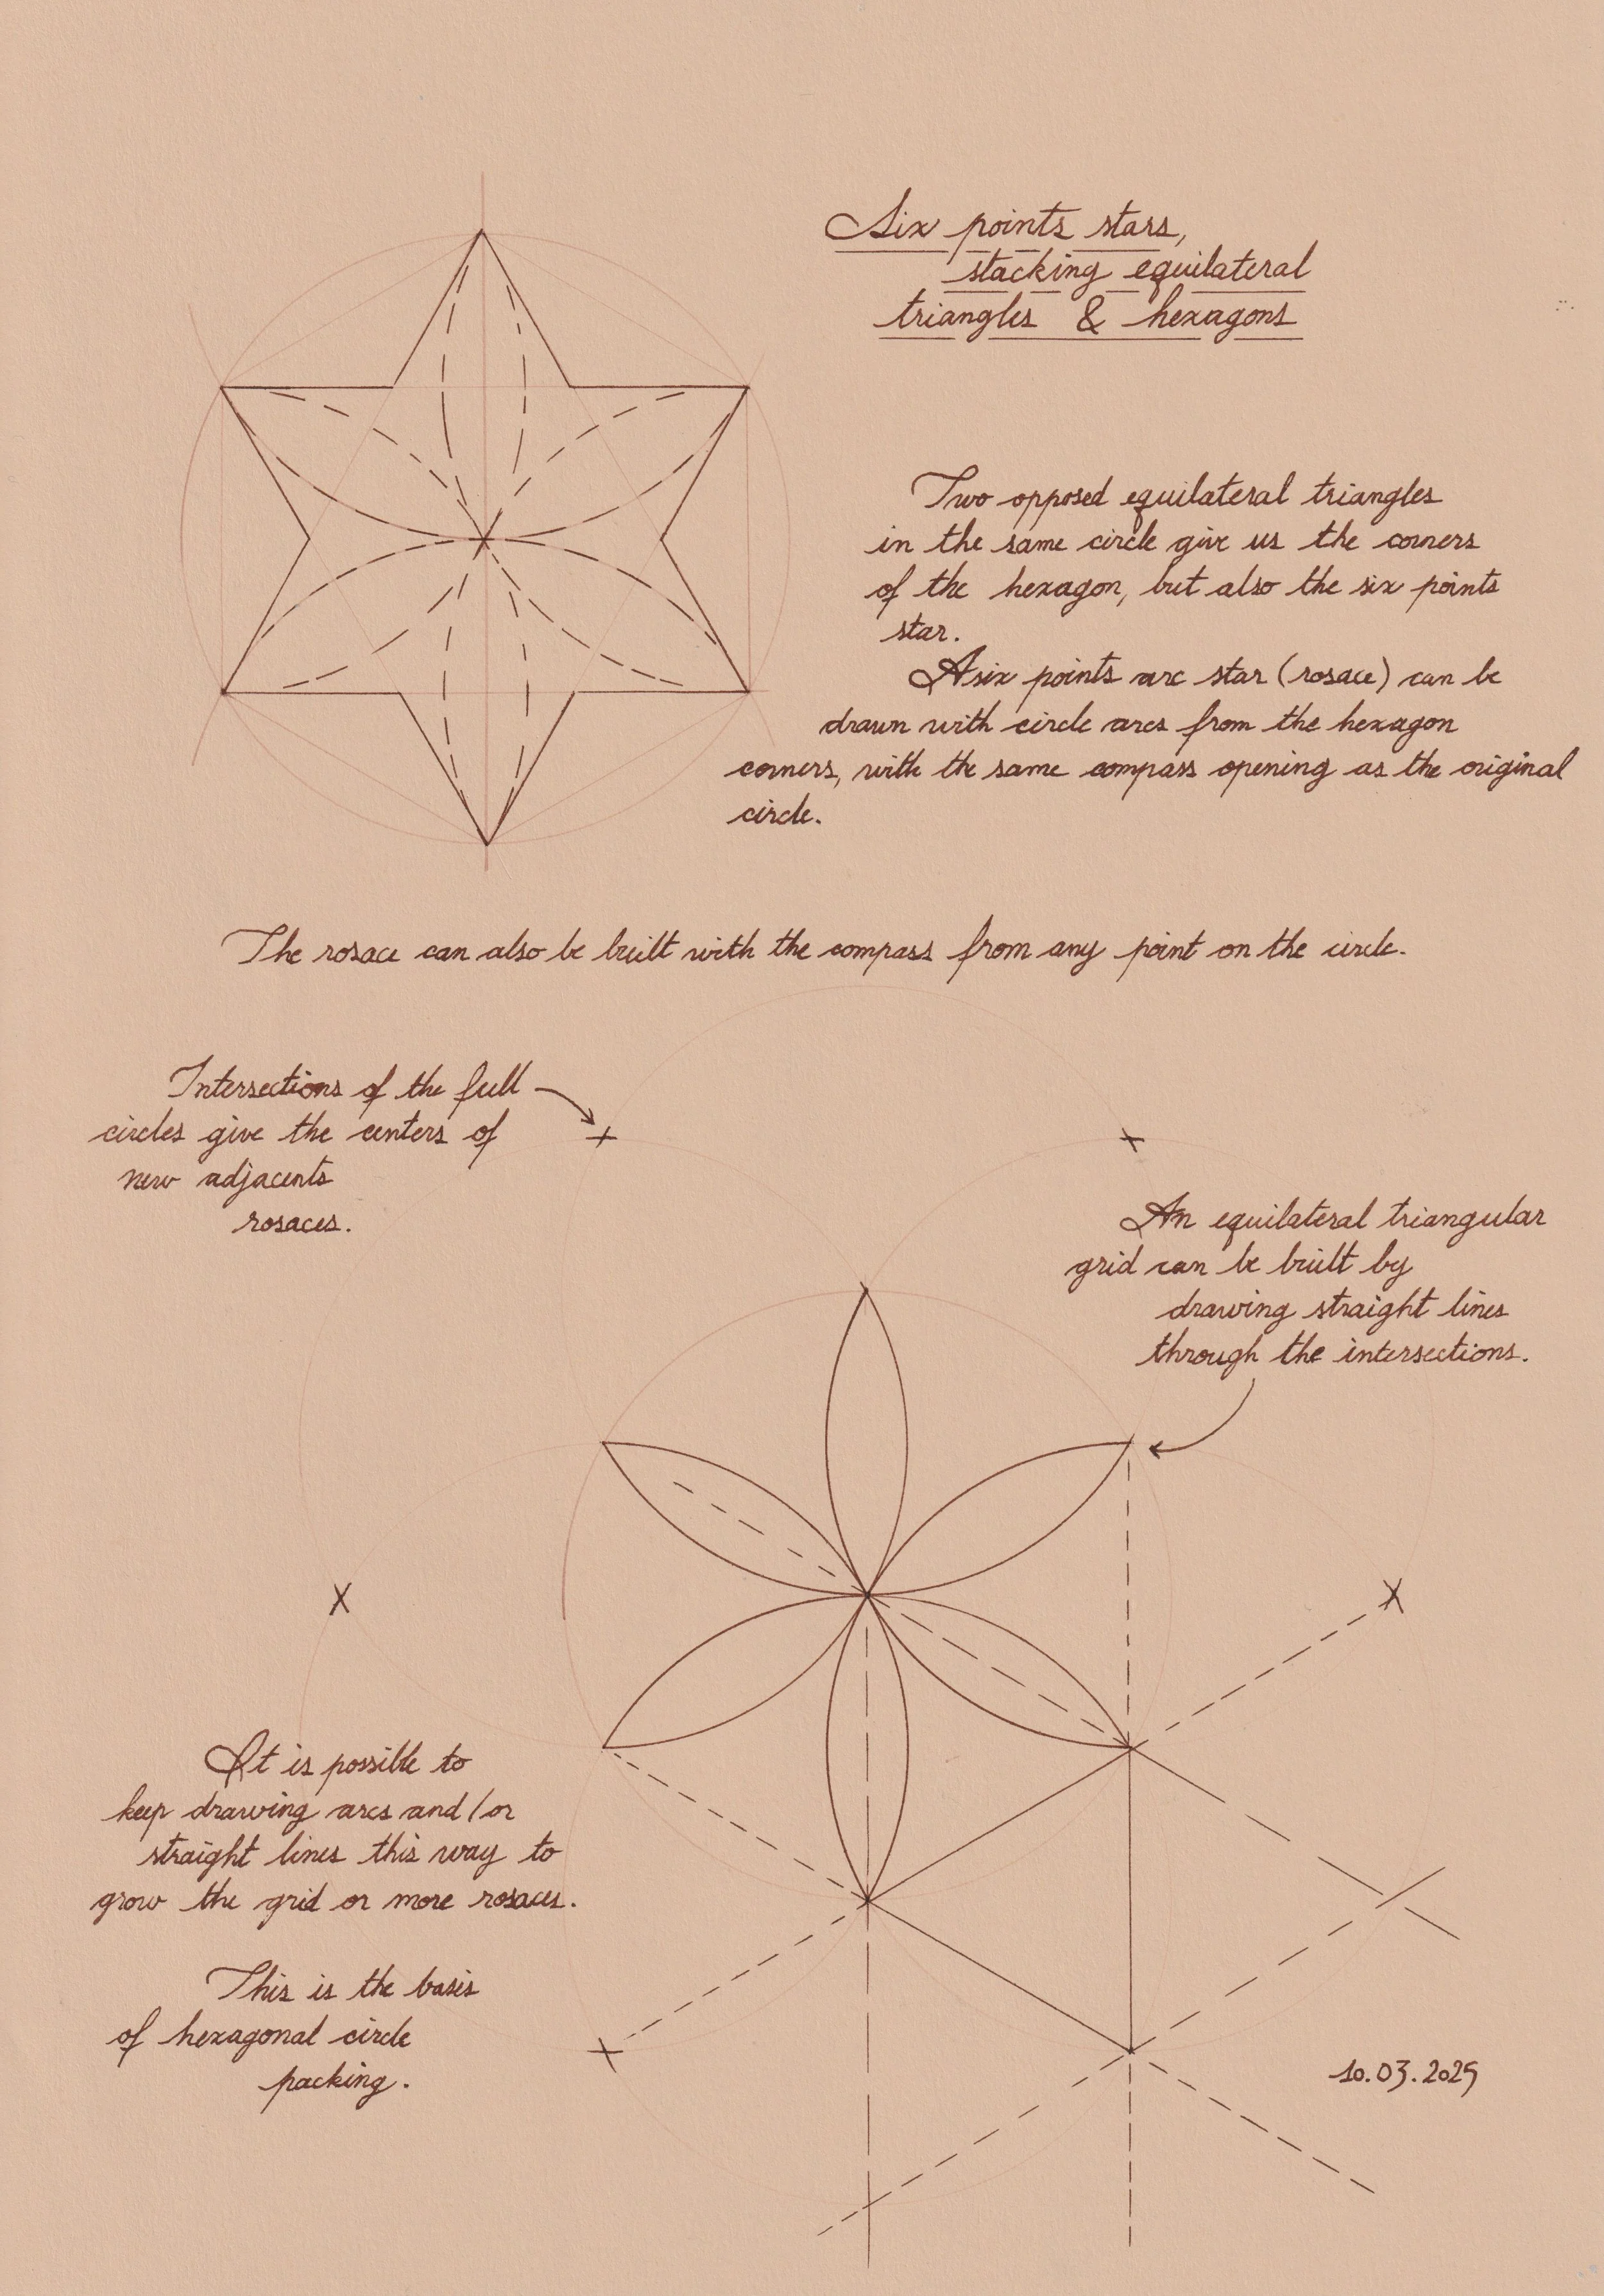 Six points stars,
stacking equilateral
triangles & hexagons
Two opposed equilateral triangles
in the same circle give us the corners
of the hexagon, but also the six points
star.
A six points arc star (rosace) can be
drawn with circle arcs from the hexagon
corners, with the same compass opening as the original
circle.
The rosace can also be built with the compass from any point on the circle.
Intersections of the full
circles give the centers of
new adjacents
rosaces.
An equilateral triangular
grid can be built by
drawing straight lines
through the intersections.
It is possible to
keep drawing arcs and/or
straight lines this way to
grow the grid or more rosaces.
This is the basis
of hexagonal circle
packing.
10.03.2025